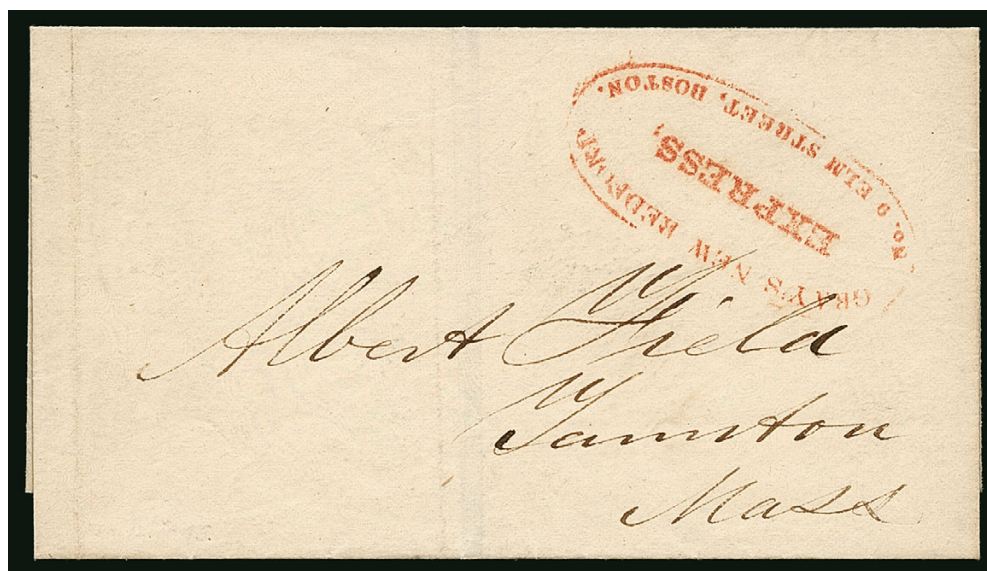 GRAY'S NEW BEDFORD
EXPRESS,
No. 9 ELM STREET, BOSTON.
Albert Field
Taunton
Mass